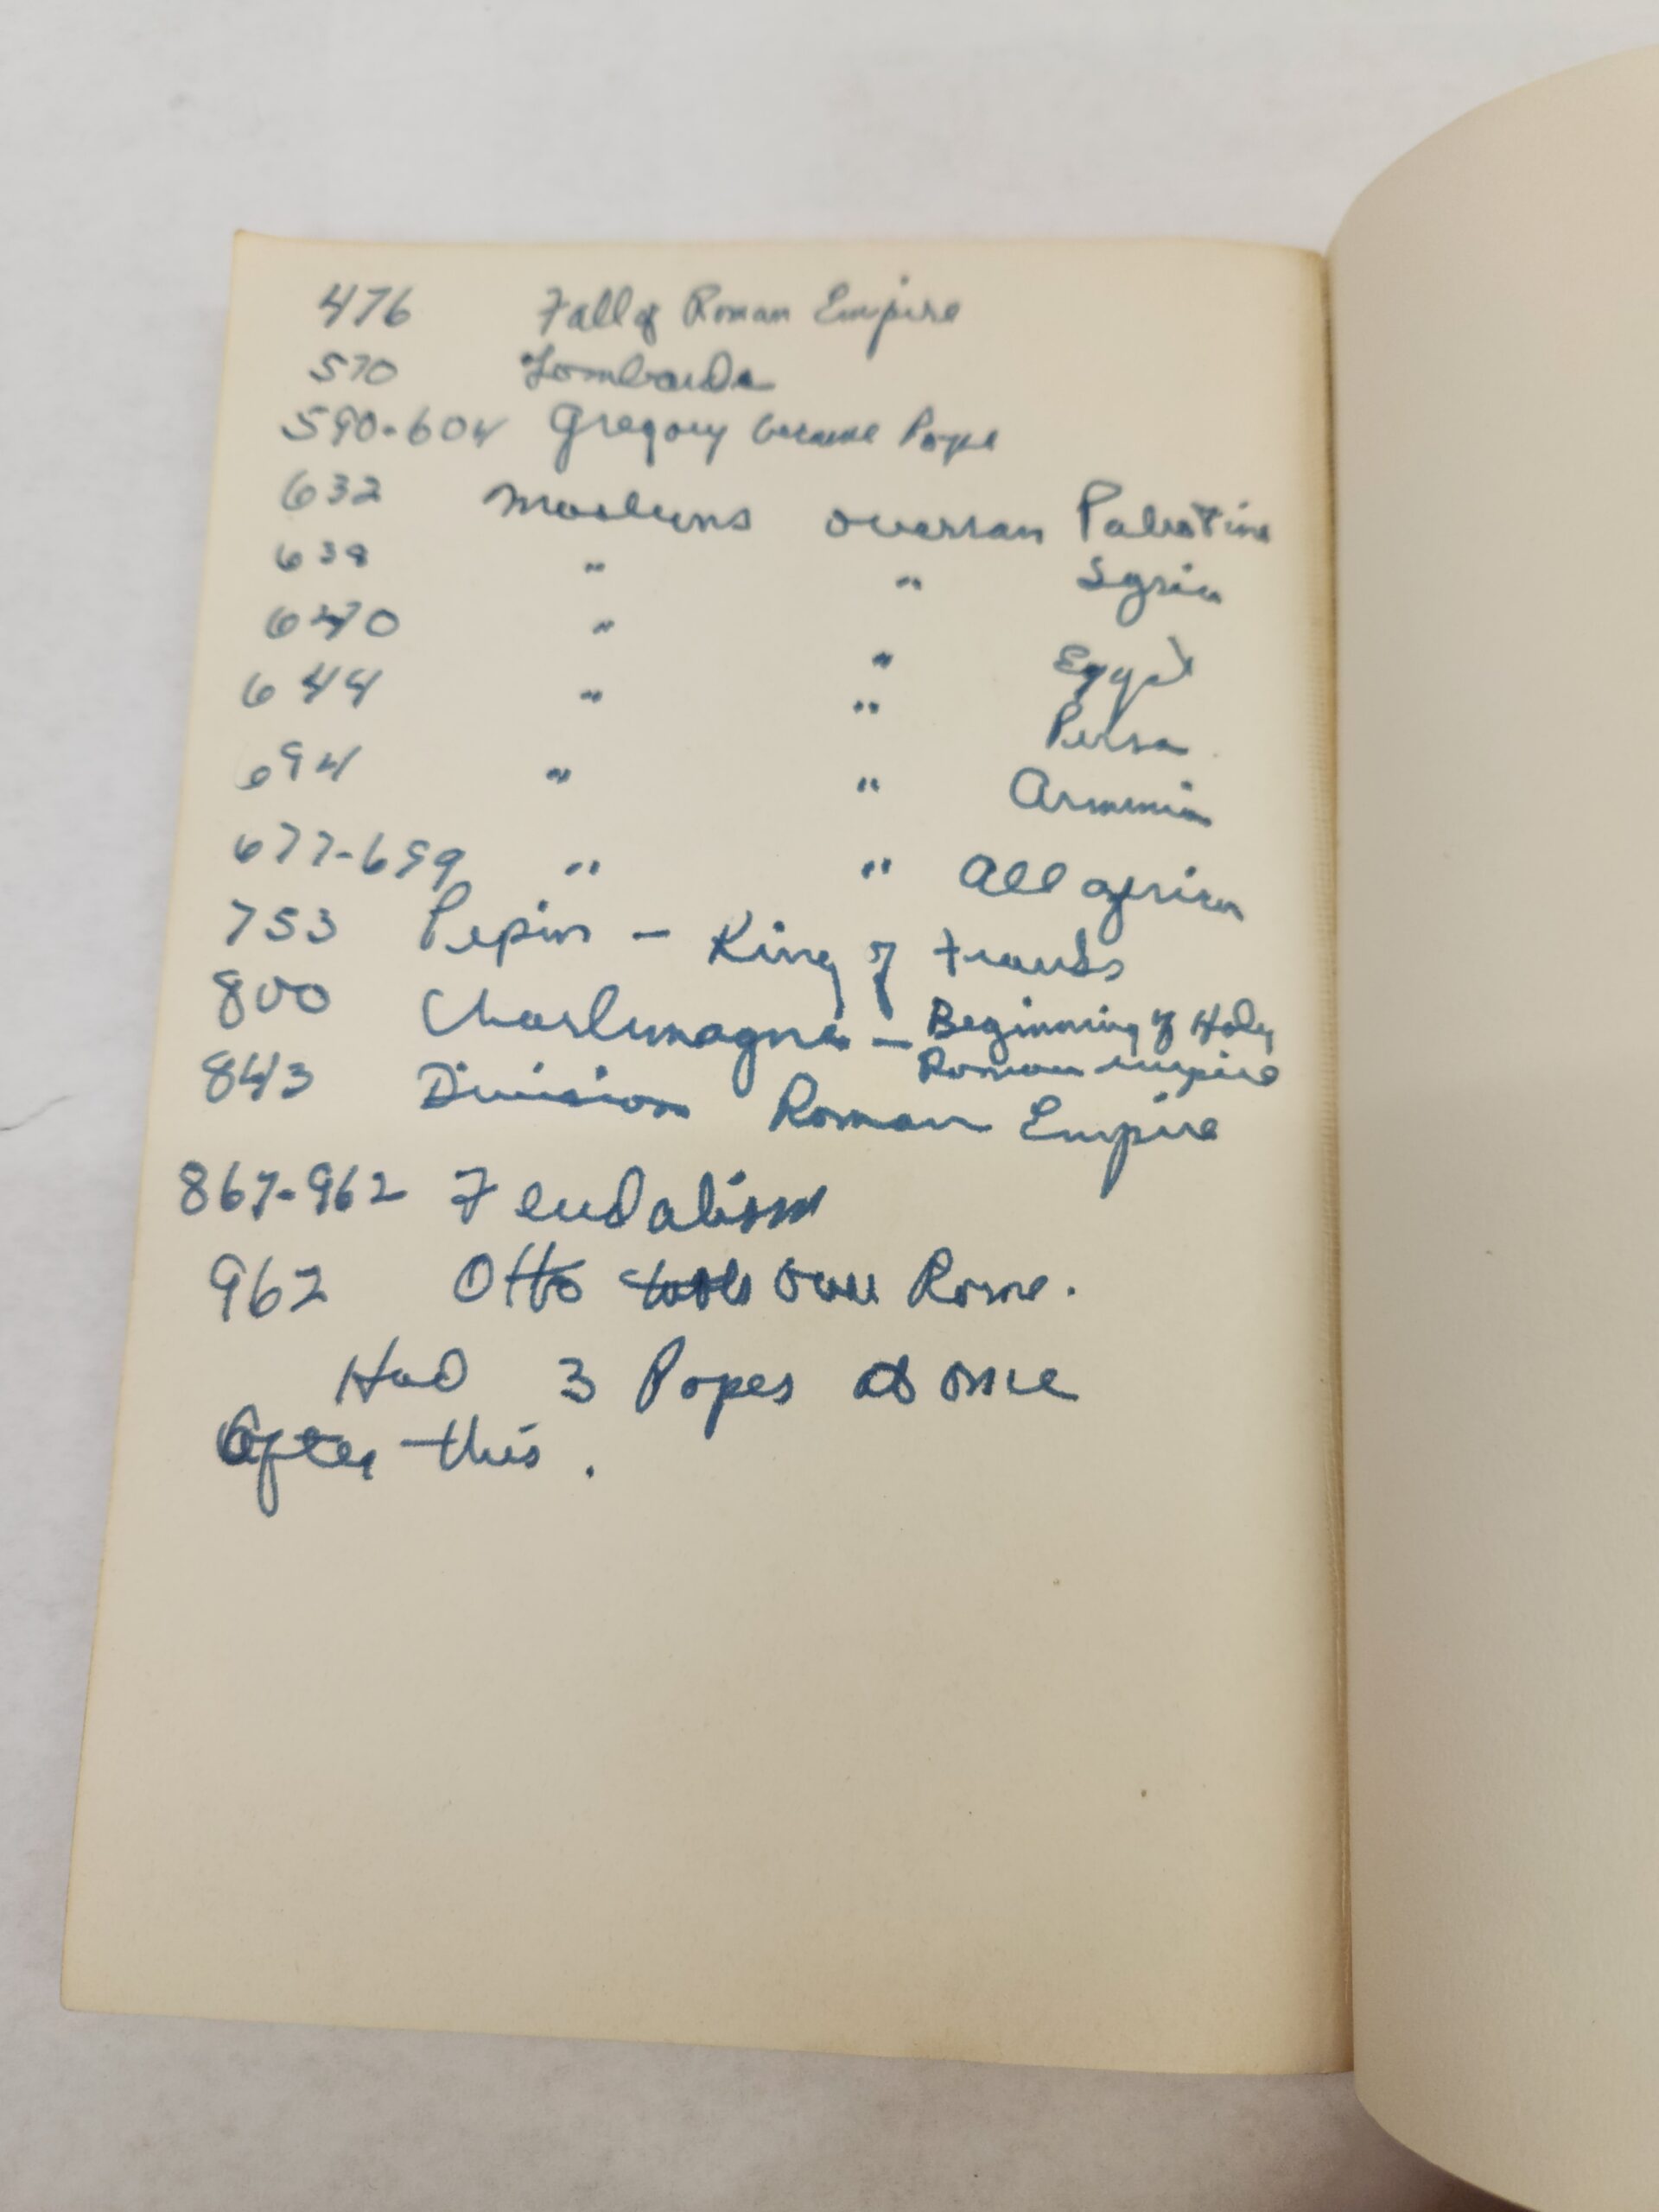 476 Fall of Roman Empire
570 Lombards
590-604 Gregory became Pope
632 Moslems overran Palestine
638 " " Syria
640 " " Egypt
644 " " Persa
694 " " Armenia
677-699 " " All africa
753 Pepin - King of Franks
800 Charlemagne - Beginning of Holy
Roman empire
843 Division Roman Empire
867-962 Feudalism
962 Otto took over Rome.
Had 3 Popes at once
After this.